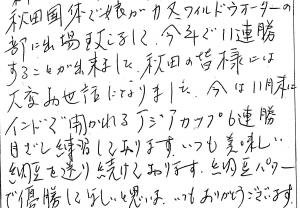 秋田国体で娘がカヌーワイルドウォーターの
部に出場致しまして、今年で11連勝
することが出来ました。秋田の皆様には
大変お世話になりました。今は11月末に
インドで開かれるアジアカップ6連勝
目ざし練習しております。いつも美味しい
納豆を送り続けております。納豆パワー
で優勝して欲しいと思います。いつもありがとうございます。